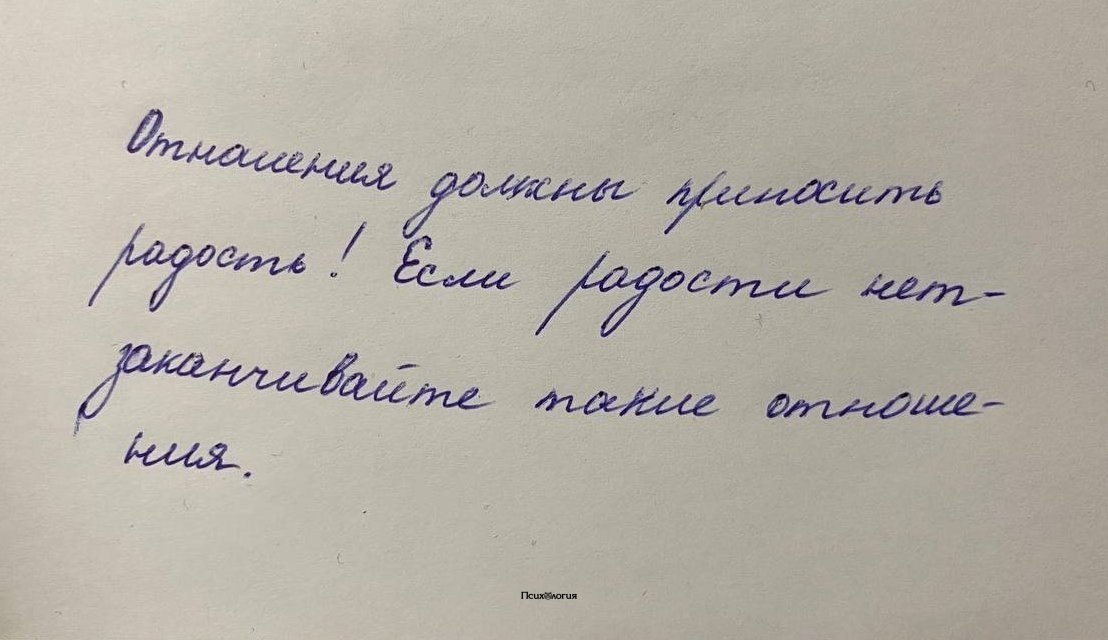 Отношения должны приносить
радость! Если радости нет-
заканчивайте такие отноше-
ния.
Психология